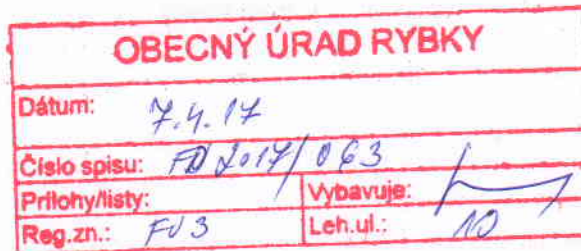 OBECNÝ ÚRAD RYBKY
Dátum: 7.4.17
Číslo spisu: FD 2017/063
Prílohy/listy: Vybavuje:
Reg.zn.: FJ3 Leh.ul.: 10